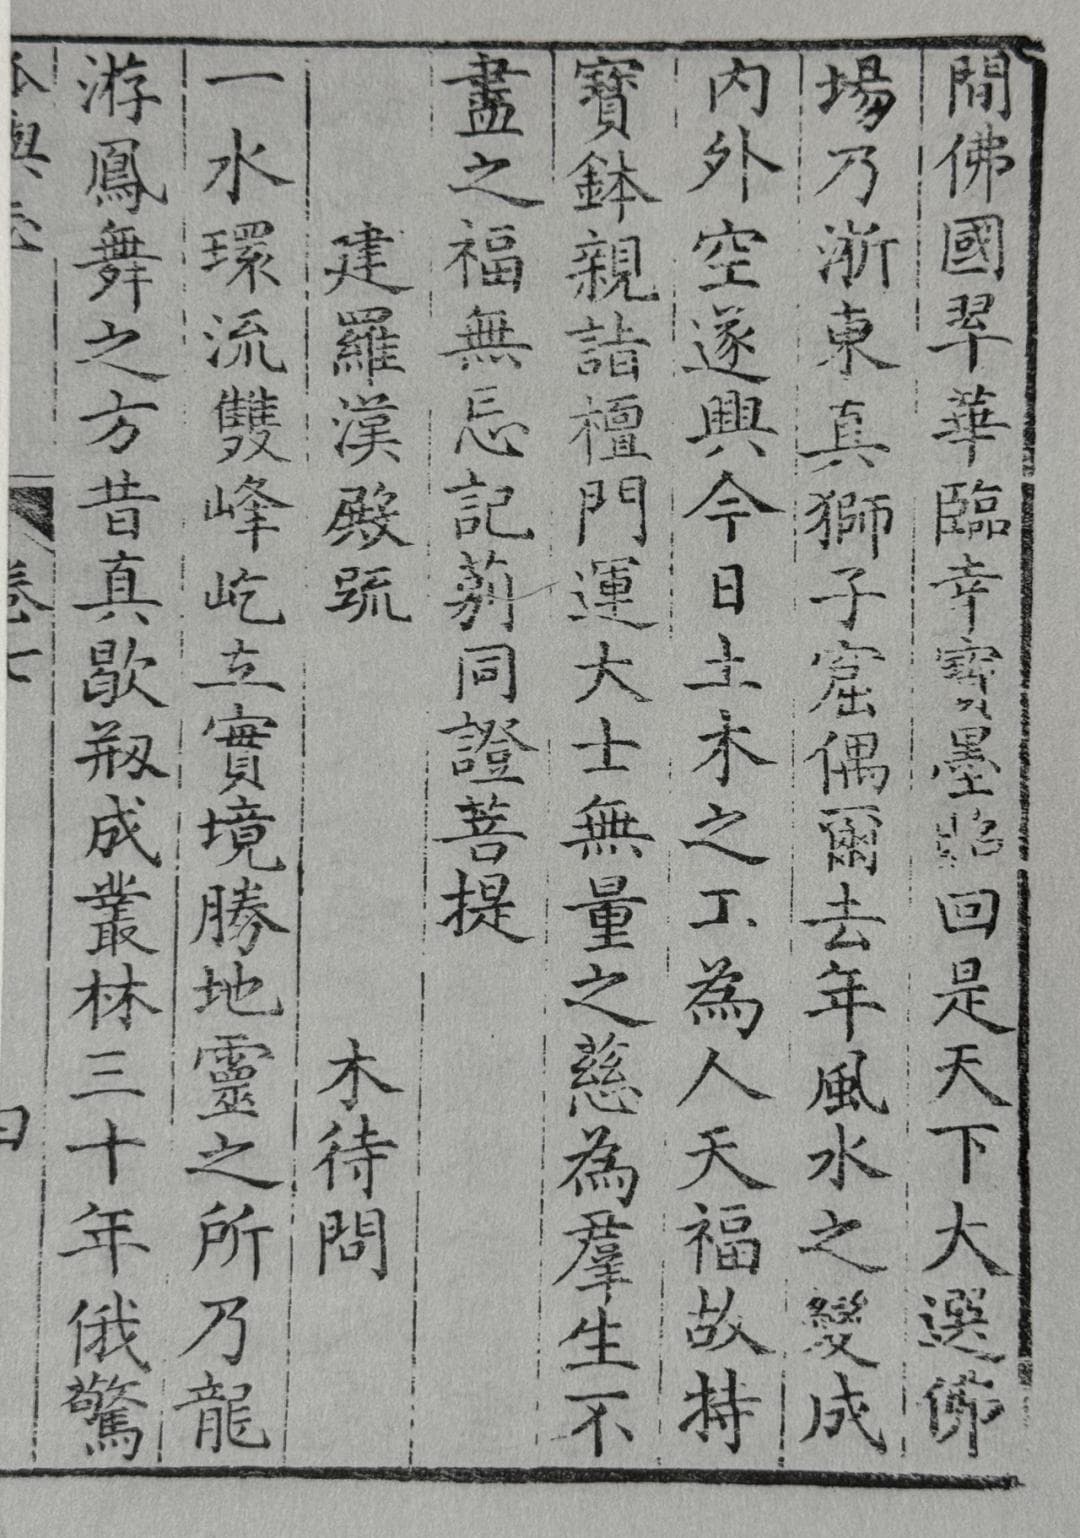 間佛國翠華臨幸寶墨昭回是天下大選佛
場乃浙東真獅子窟偶爾去年風水之變成
内外空遂興今日土木之工為人天福故持
寶鉢親詣檀門運大士無量之慈為羣生不
盡之福無忘記莂同證菩提
建羅漢殿䟽 木待問
一水環流雙峰屹立實境勝地靈之所乃龍
游鳳舞之方昔真歇剏成叢林三十年俄驚
卷七